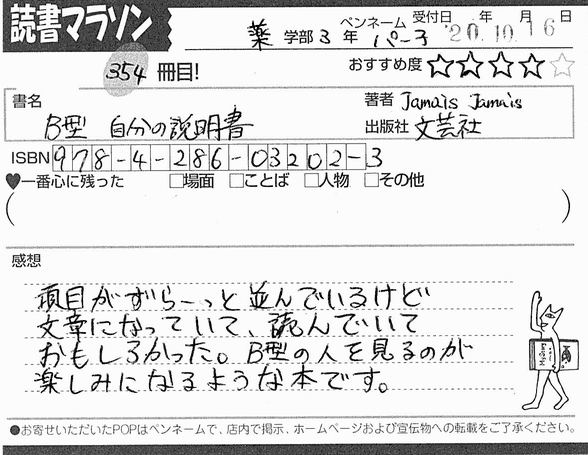 読書マラソン
薬 学部 3 年 ペンネーム パー子 受付日 '20年10月16日
354 冊目! おすすめ度 ★★★★☆
書名 著者 Jamais Jamais
B型 自分の説明書 出版社 文芸社
ISBN 978-4-286-03202-3
♥一番心に残った □場面 □ことば □人物 □その他
( )
感想
項目がずらーっと並んでいるけど
文章になっていて、読んでいて
おもしろかった。B型の人を見るのが
楽しみになるような本です。
●お寄せいただいたPOPはペンネームで、店内で掲示、ホームページおよび宣伝物への転載をご了承ください。